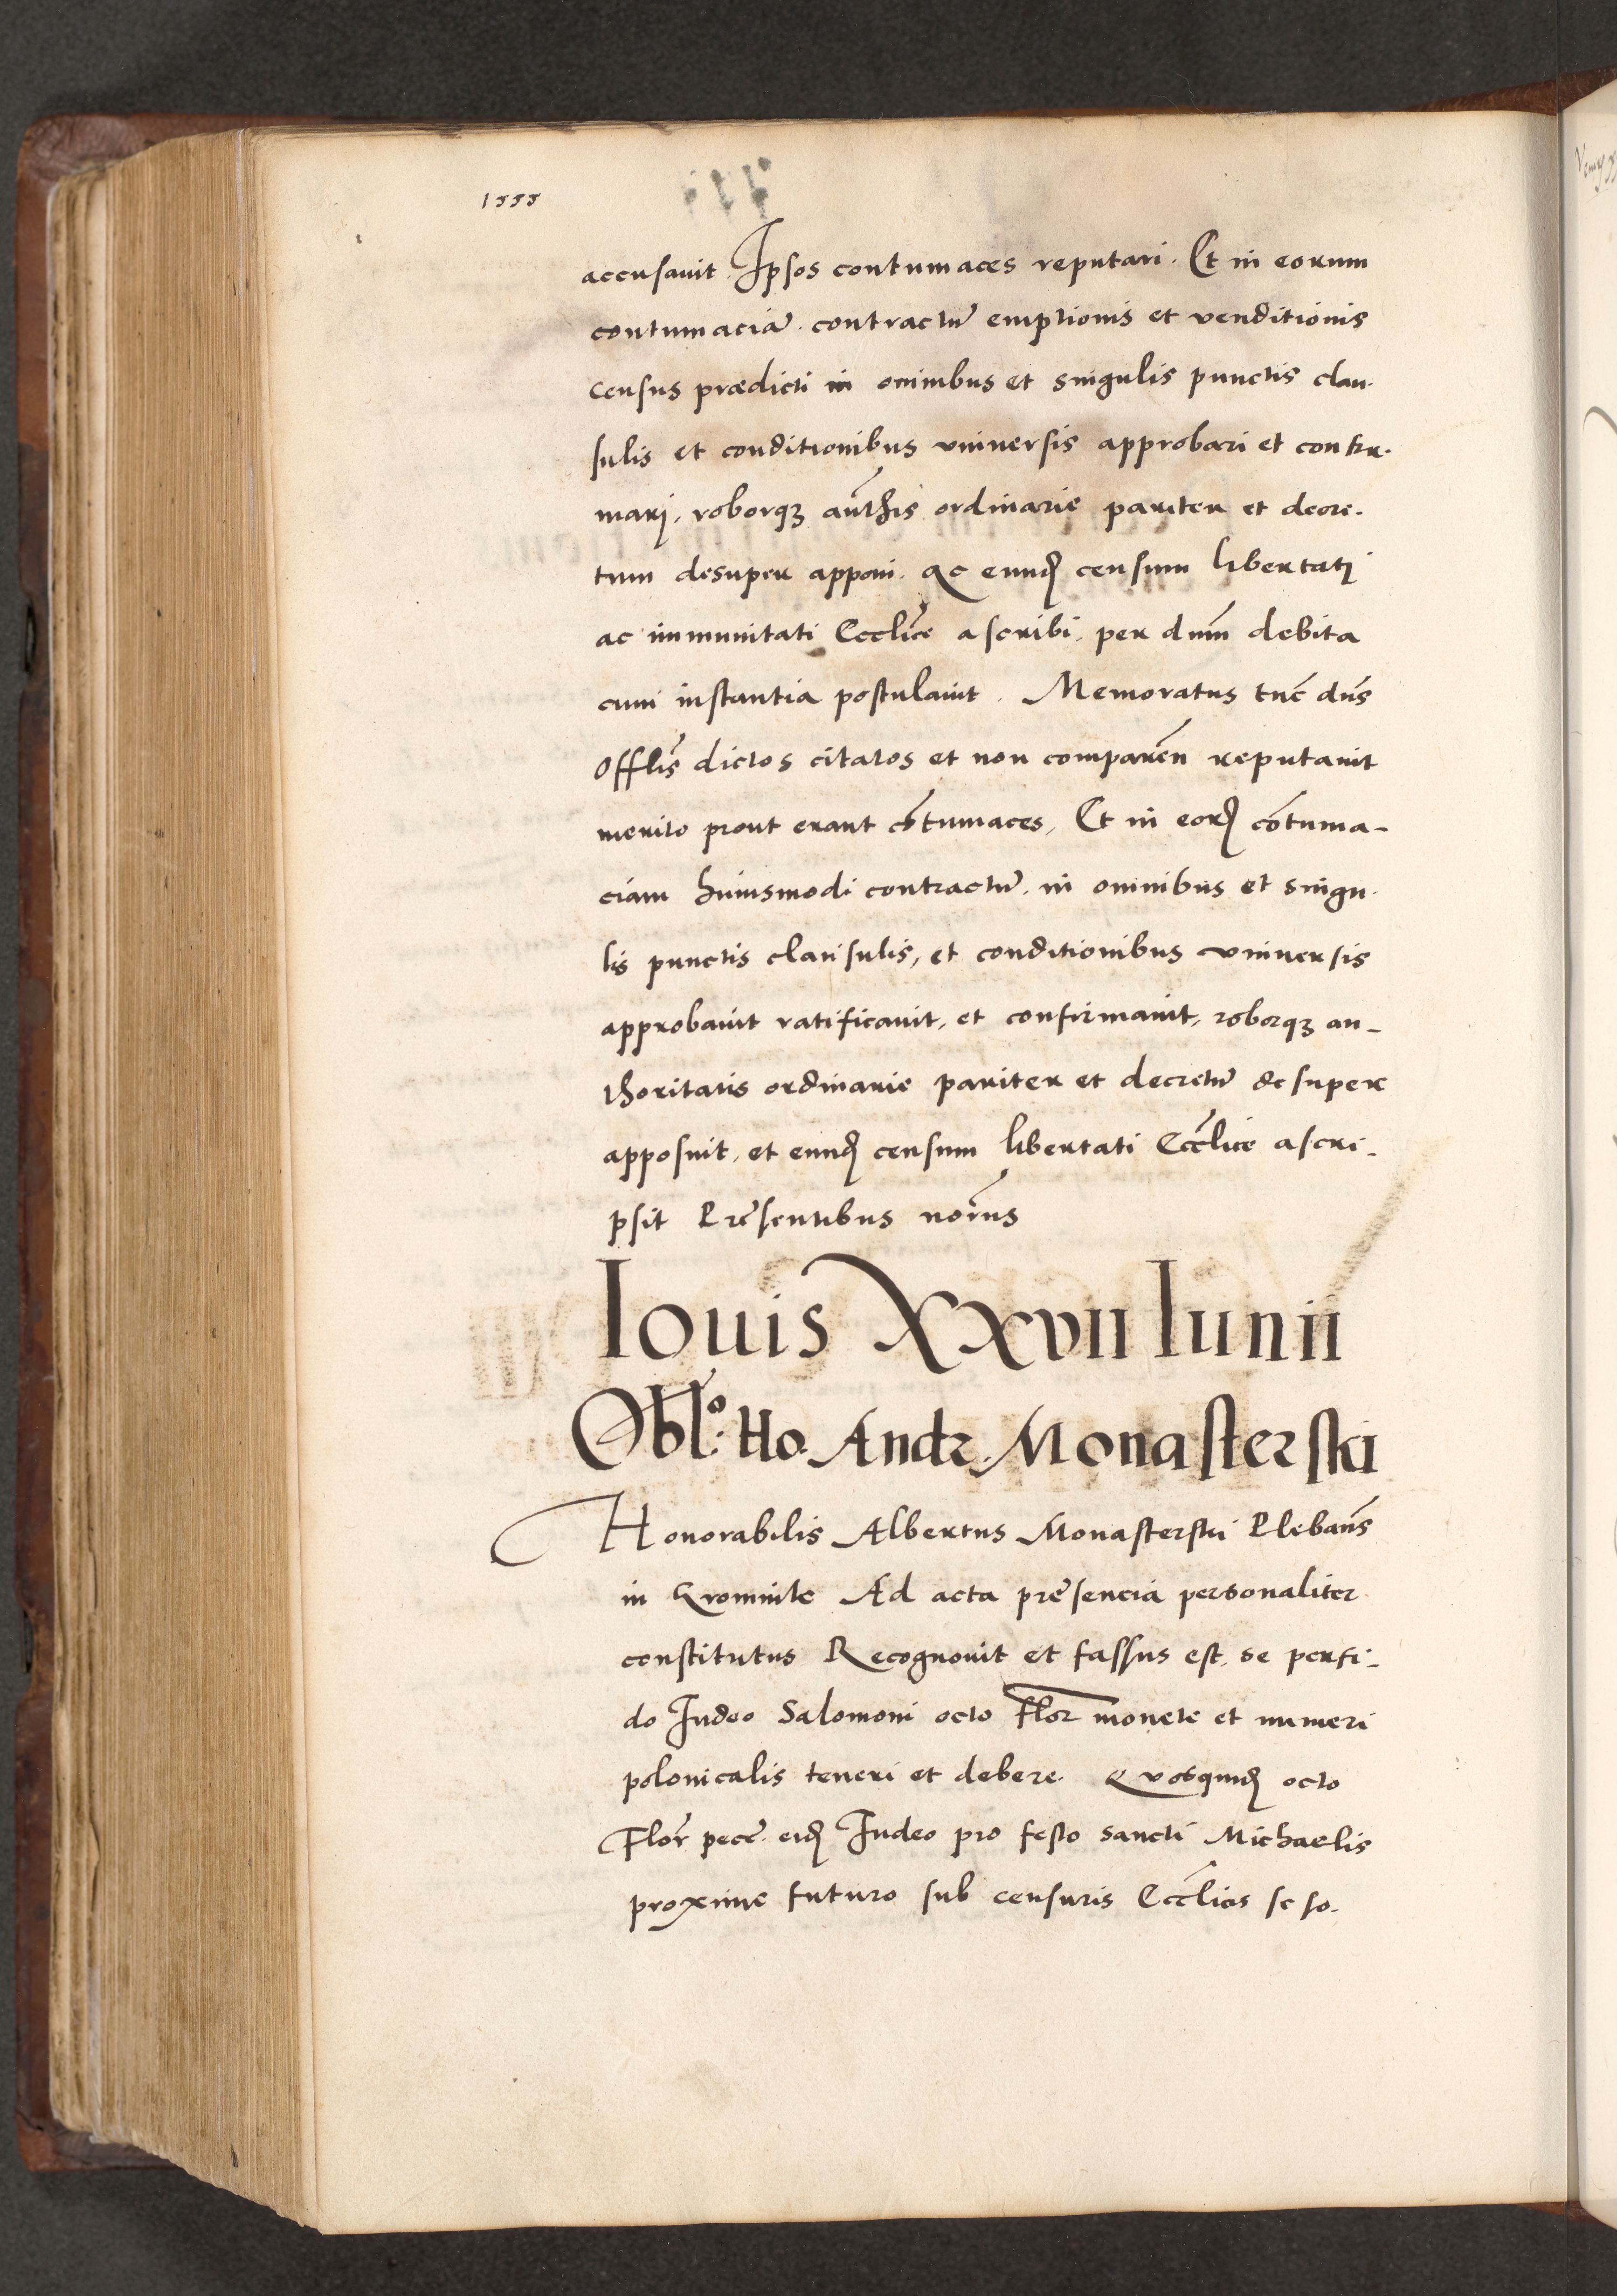 1555
accusauit. Ipsos contumaces reputari. Et in eorum
contumaciā. contractū emptionis et venditionis
census prædicti in omnibus et singulis punctis clau-
sulis et conditionibus vniuersis approbari et confir-
marj, roborqꝫ auͨthis ordinarie pariter et decre-
tum desuper apponi. ac eundꝫ censum libertatj
ac immunitati Eccliē ascribi. per dnm̄ debita
cum instantia postulauit. Memoratus tunc dn̄s
Offlīs dictos citatos et non comparēn reputauit
merito prout erant cōtumaces, Et in eorꝫ cōtuma-
ciam huiusmodi contractū. in omnibus et singu-
lis punctis clausulis, et conditionibus vniuersis
approbauit ratificauit, et confirmauit, roborqꝫ au-
thoritatis ordinarie pariter et decretū desuper
apposuit, et eundꝫ censum libertati Eccl̄ice ascri-
psit Prēsentibus nor̄ius
Iouis XXVII Iunii
Obl:º Ho. Andr. Monasterski
Honorabilis Albertus Monasterski Plebanūs
in Kromnite Ad acta prēsencia personaliter
constitutus Recognouit et fassus est, se perfi-
do Iudeo Salomoni octo flor monete et numeri
polonicalis teneri et debere. Quosquidꝫ octo
Flor̄ pecc̄. eidꝫ Iudeo pro festo sancti Michaelis
proxime futuro sub censuris Eccl̄icis se so-